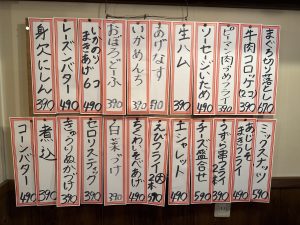 まぐろ切り落し 690
牛肉コロッケ(2コ) 390
ピーマン肉づめフライ 490
ソーセージいため 390
生ハム 390
あげなす 390
いかめんち 390
おぼろどーふ 390
いかのり まきあげ6コ 490
レーズンバター 490
身欠にしん 390
ミックスナッツ 590
あおしそ まきフライ 490
うずら串フライ 2本 390
チーズ盛合せ 590
エシャレット 490
えびフライ 2本 590
ちくわいそべあげ 490
白菜づけ 390
セロリスティック 390
きゅうりぬかづけ 390
煮込 490
コーンバター 490